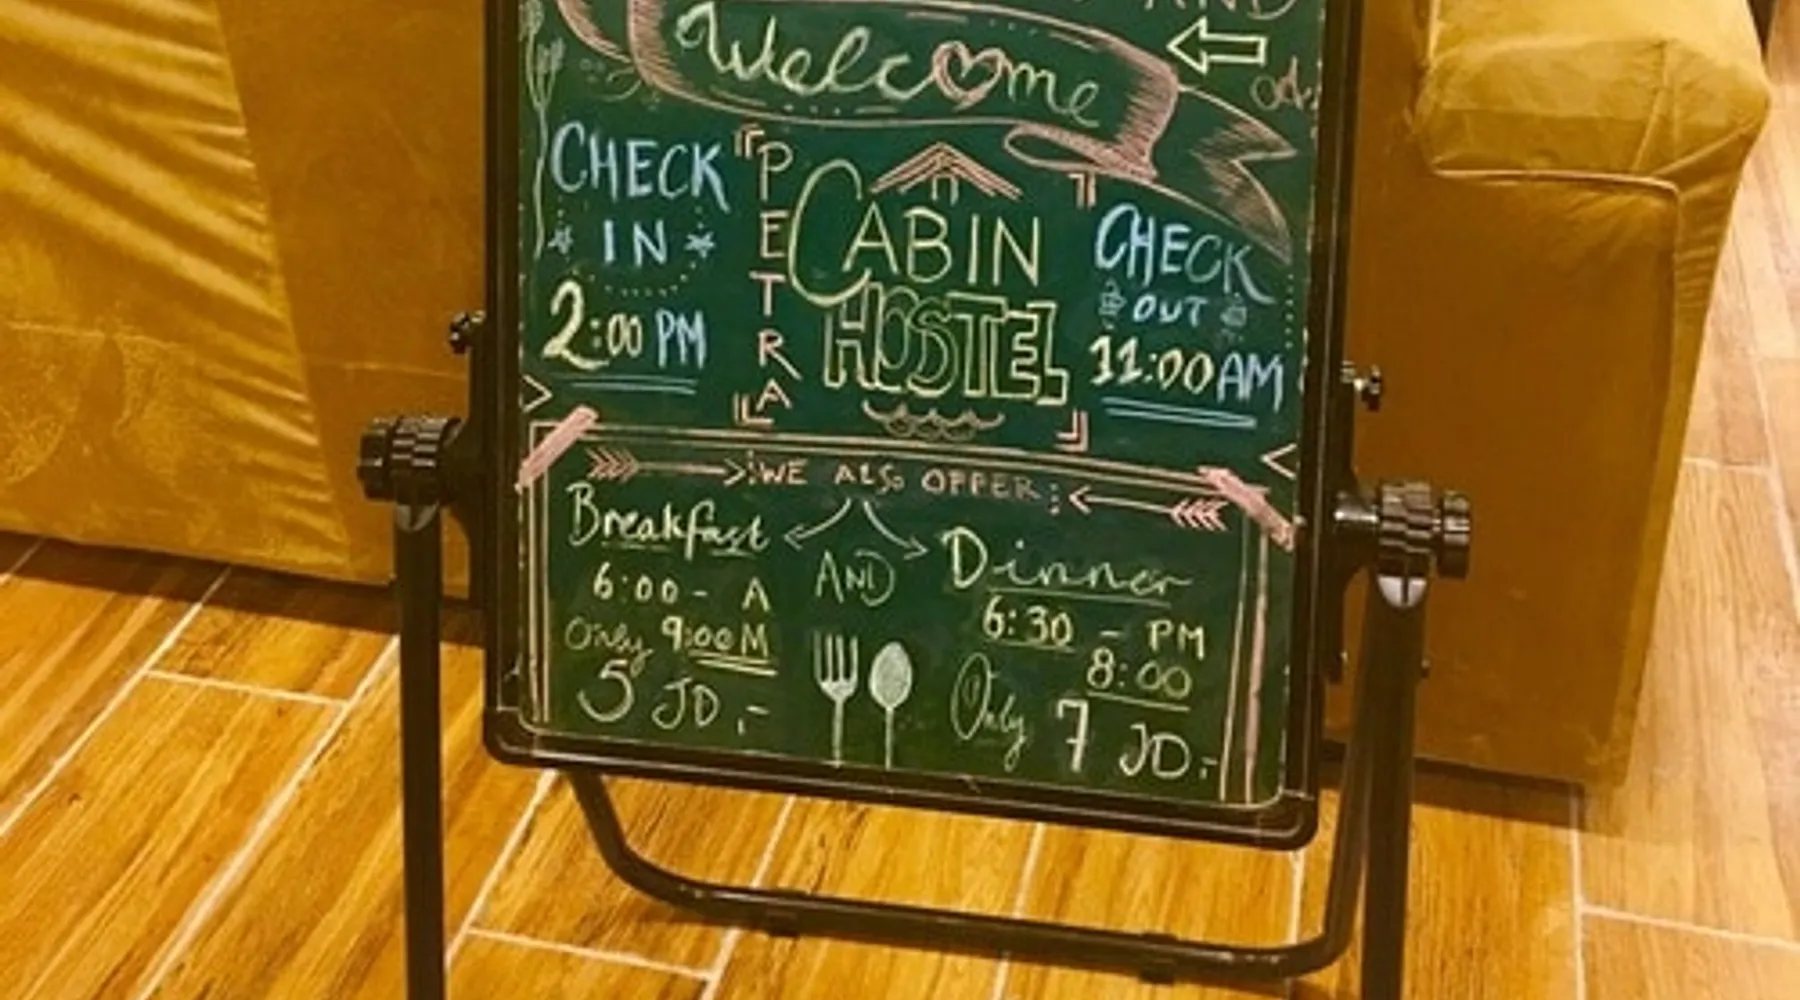 AND
Welcome
CHECK
IN
2:00 PM
PETRA
CABIN
HOSTEL
CHECK
OUT
11:00 AM
WE ALSO OFFER:
Breakfast
6:00 - A
9:00 M
Only
5 JD,-
AND
Dinner
6:30 - PM
8:00
Only 7 JD,-